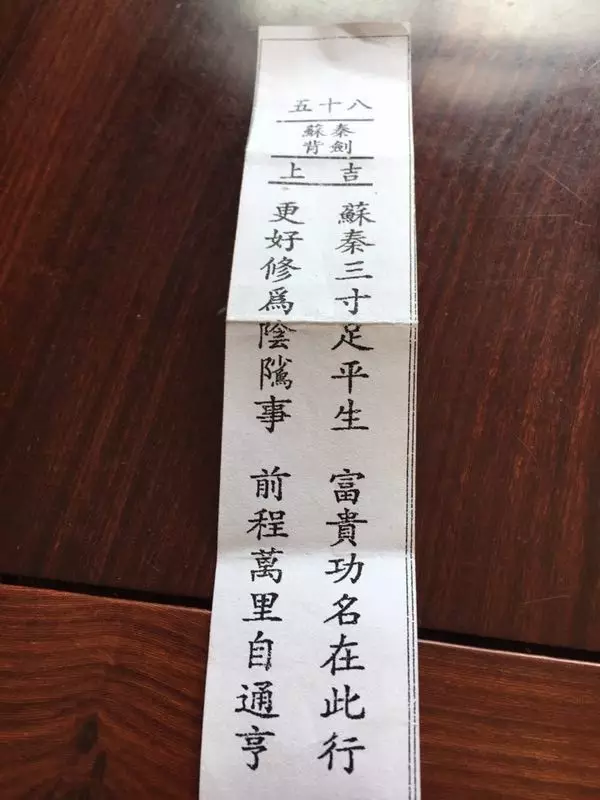 五十八
蘇秦
背劍
上吉
蘇秦三寸足平生 富貴功名在此行
更好修爲陰隲事 前程萬里自通亨